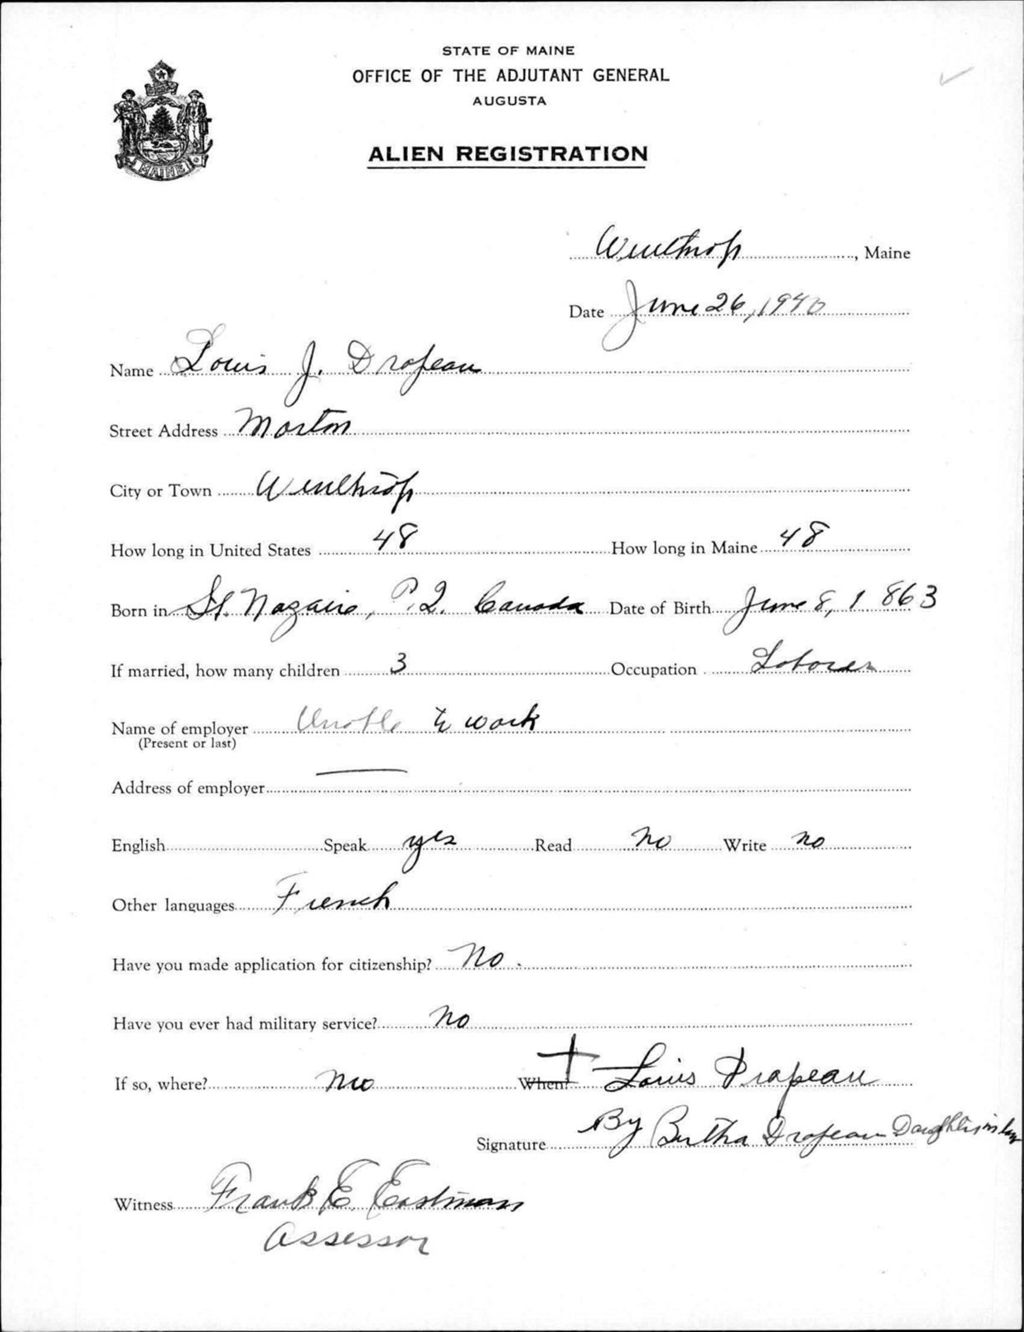 STATE OF MAINE
OFFICE OF THE ADJUTANT GENERAL
AUGUSTA
ALIEN REGISTRATION
MAINE
Winthrop, Maine
Date June 26, 1940
Name Louis J. Drapeau
Street Address Morton
City or Town Winthrop
How long in United States 48 How long in Maine 48
Born in St. Nazaire, P.Q. Canada Date of Birth June 8, 1863
If married, how many children 3 Occupation Laborer
Name of employer Unable to work
(Present or last)
Address of employer
English Speak yes Read No Write No
Other languages French
Have you made application for citizenship? No.
Have you ever had military service? No
If so, where? No When? Louis Drapeau
Signature By Bertha Drapeau Daughter in law
Witness Frank E. Eastman
Assessor